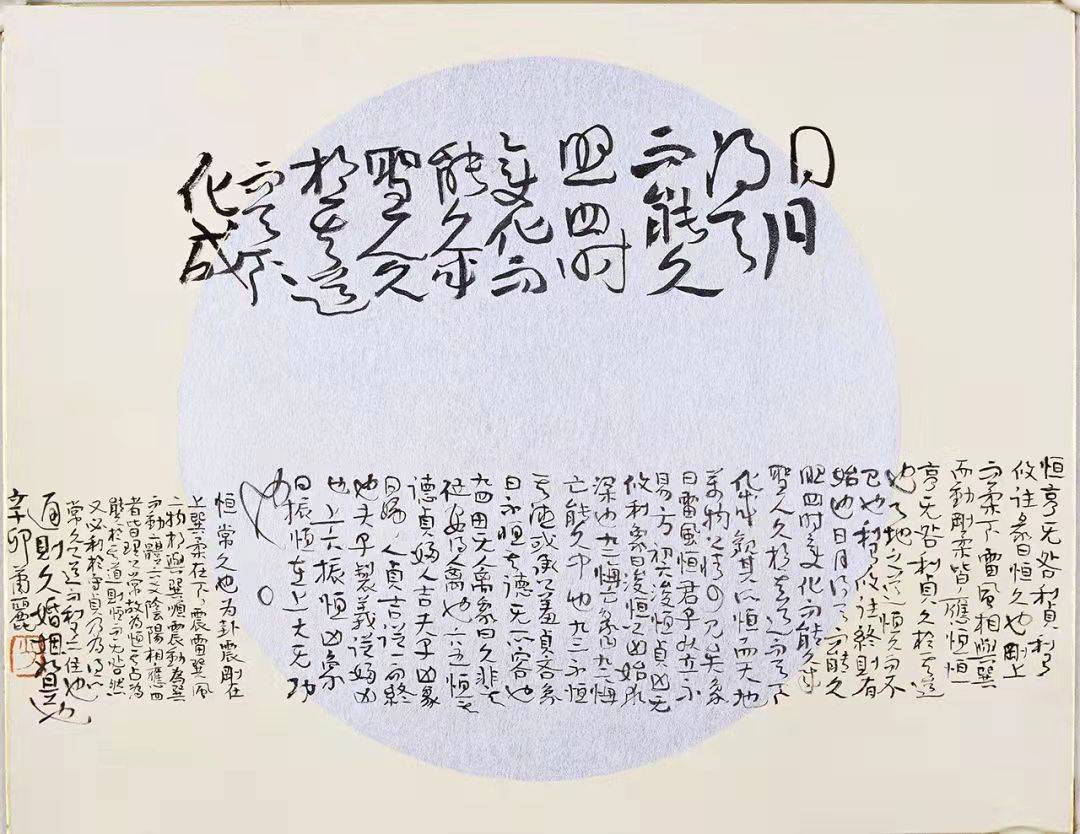 日月
得天
而能久
照四时
变化而
能久成
聖人久
於其道
而天下
化成
恒亨无咎利貞利有
攸往彖曰恒久也剛上
而柔下雷風相與巽
而動剛柔皆應恒恒
亨无咎利貞久於其道
也天地之道恒久而不
已也利有攸往終則有
始也日月得天而能久
照四时变化而能久成
聖人久於其道而天下
化成觀其所恒而天地
萬物之情可見矣象
曰雷風恒君子以立不
易方初六浚恒貞凶无
攸利象曰浚恒之凶始求
深也九二悔亡象曰九二悔
亡能久中也九三不恒
其德或承之羞貞吝象
曰不恒其德无所容也
九四田无禽象曰久非其
位安得禽也六五恒其
德貞婦人吉夫子凶象
曰婦人貞吉從一而終
也夫子製義從婦凶
也上六振恒凶象
曰振恒在上大无功
也
恒常久也为卦震剛在
上巽柔在下震雷巽風
二物相與巽順震動為巽
而動二體六爻陰陽相應四
者皆理之常故為恒其占為
能久於其道則恒而无咎然
又必利於守貞乃為得所
常久之道而利有所往也
則久婚姻之道也
辛卯蕭麗